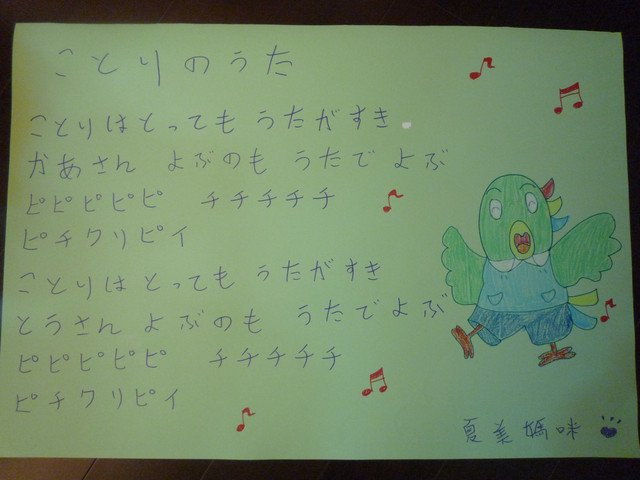 ことりのうた
ことりはとっても うたがすき
かあさん よぶのも うたで よぶ
ピピピピピ チチチチチ
ピチクリピイ
ことりは とっても うたがすき
とうさん よぶのも うたでよぶ
ピピピピピ チチチチチ
ピチクリピイ
夏美媽咪